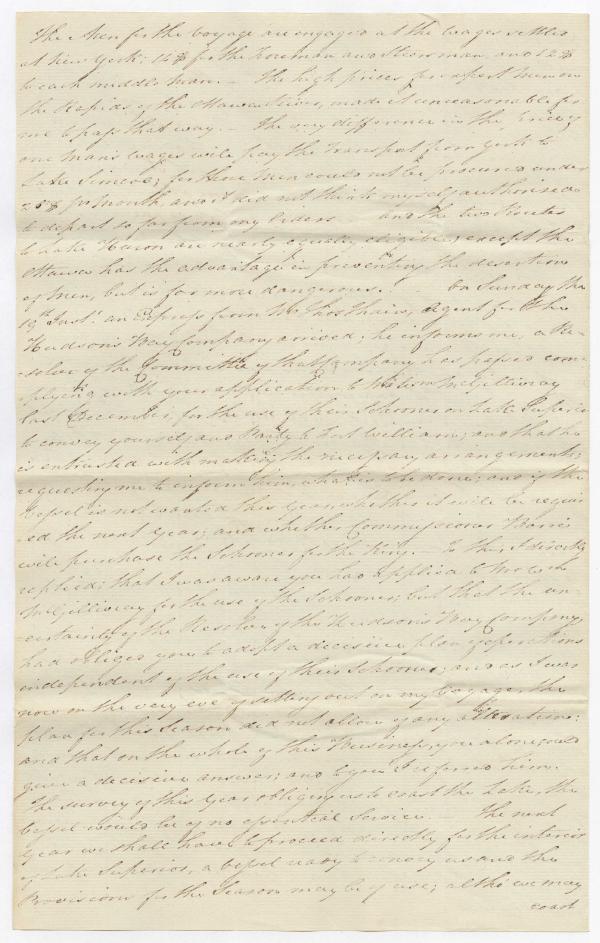 The Men for the Voyage are engaged at the wages settled
at New York: 14$ for the Foreman and Steersman, and 12$
to each middle man. — The high prices for expert men on
the Rapids of the Ottawa River, made it unreasonable for
me to pass that way. — The very difference in the Price of
one man's wages will pay the Transport from York to
Lake Simcoe; for these Men could not be procured under
25$ pr month and I did not think myself authorised
to depart so far from my Orders and the two Routes
to Lake Huron are nearly equally eligible, except the
Ottawa has the advantage in preventing the desertion
of men, but is far more dangerous. On Sunday the
19th Inst. an express from Mr Thos Thain, Agent for the
Hudson's Bay Company arrived; he informs me, a Re-
-solve of the Committee of that Company has passed com-
plying with your application to William McGillivray
last December, for the use of their Schooner on Lake Superior
to convey yourself and Party to Fort William; and that he
is entrusted with making the necessary arrangements;
requesting me to inform him, what is to be done; and if the
Vessel is not wanted this year, whether it will be requir-
-ed the next year; and whether Commissioner Barrie
will purchase the Schooner for the King. To this, I directly
replied; that I was aware you had applied to Mr Wm
McGillivray for the use of the Schooner; but that the un-
certainty of the Resolve of the Hudson's Bay Company,
had obliged you to adopt a decisive plan of operations
independent of the use of their Schooner; and as I was
now on the very eve of setting out on my voyage, the
plan for this Season did not allow of any alteration:
and that on the whole of this Business, you alone, could
give a decisive answer; and to you I referred him.
The survey of this year obliging us to coast the Lake, the
Vessel would be of no essential Service. The next
year we shall have to proceed directly for the interior
of Lake Superior, a vessel ready to convey us and the
Provisions for the Season may be of use; altho' we may
coast